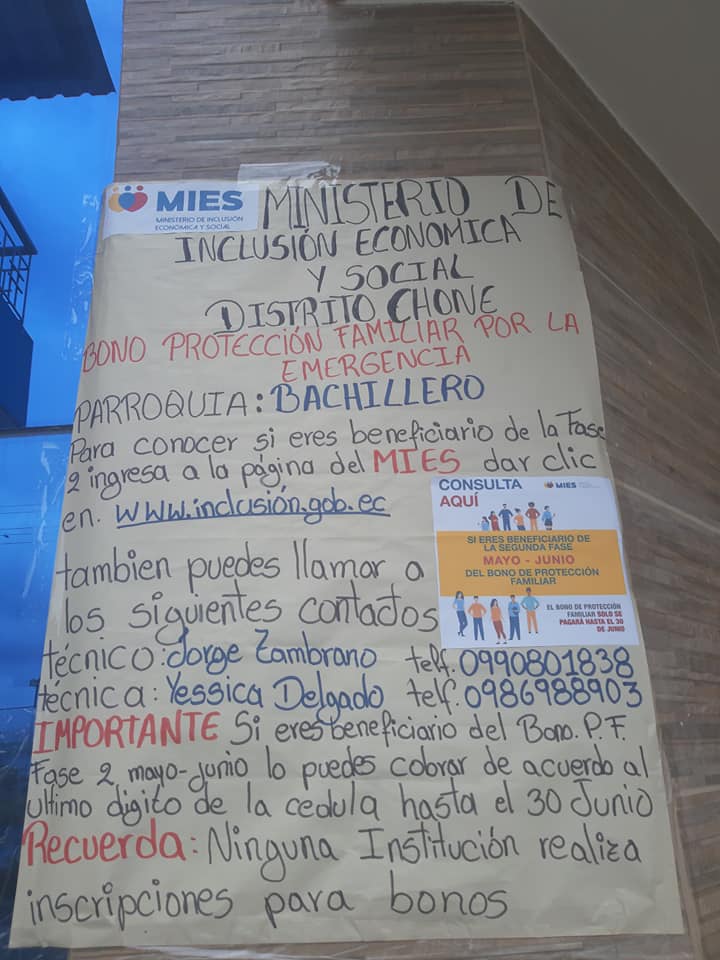 MIES
MINISTERIO DE INCLUSIÓN
ECONÓMICA Y SOCIAL
MINISTERIO DE
INCLUSIÓN ECONOMICA
Y SOCIAL
DISTRITO CHONE
BONO PROTECCIÓN FAMILIAR POR LA
EMERGENCIA
PARROQUIA: BACHILLERO
Para conocer si eres beneficiario de la Fase
2 ingresa a la página del MIES dar clic
en. www.inclusión.gob.ec
CONSULTA
AQUÍ
MIES
SI ERES BENEFICIARIO DE
LA SEGUNDA FASE
MAYO - JUNIO
DEL BONO DE PROTECCIÓN
FAMILIAR
EL BONO DE PROTECCIÓN
FAMILIAR SOLO SE
PAGARÁ HASTA EL 30
DE JUNIO
tambien puedes llamar a
los siguientes contactos
técnico: Jorge Zambrano telf. 0990801838
técnica: Yessica Delgado telf. 0986988903
IMPORTANTE Si eres beneficiario del Bono. P.F.
Fase 2 mayo-junio lo puedes cobrar de acuerdo al
ultimo digito de la cedula hasta el 30 Junio
Recuerda: Ninguna Institución realiza
inscripciones para bonos